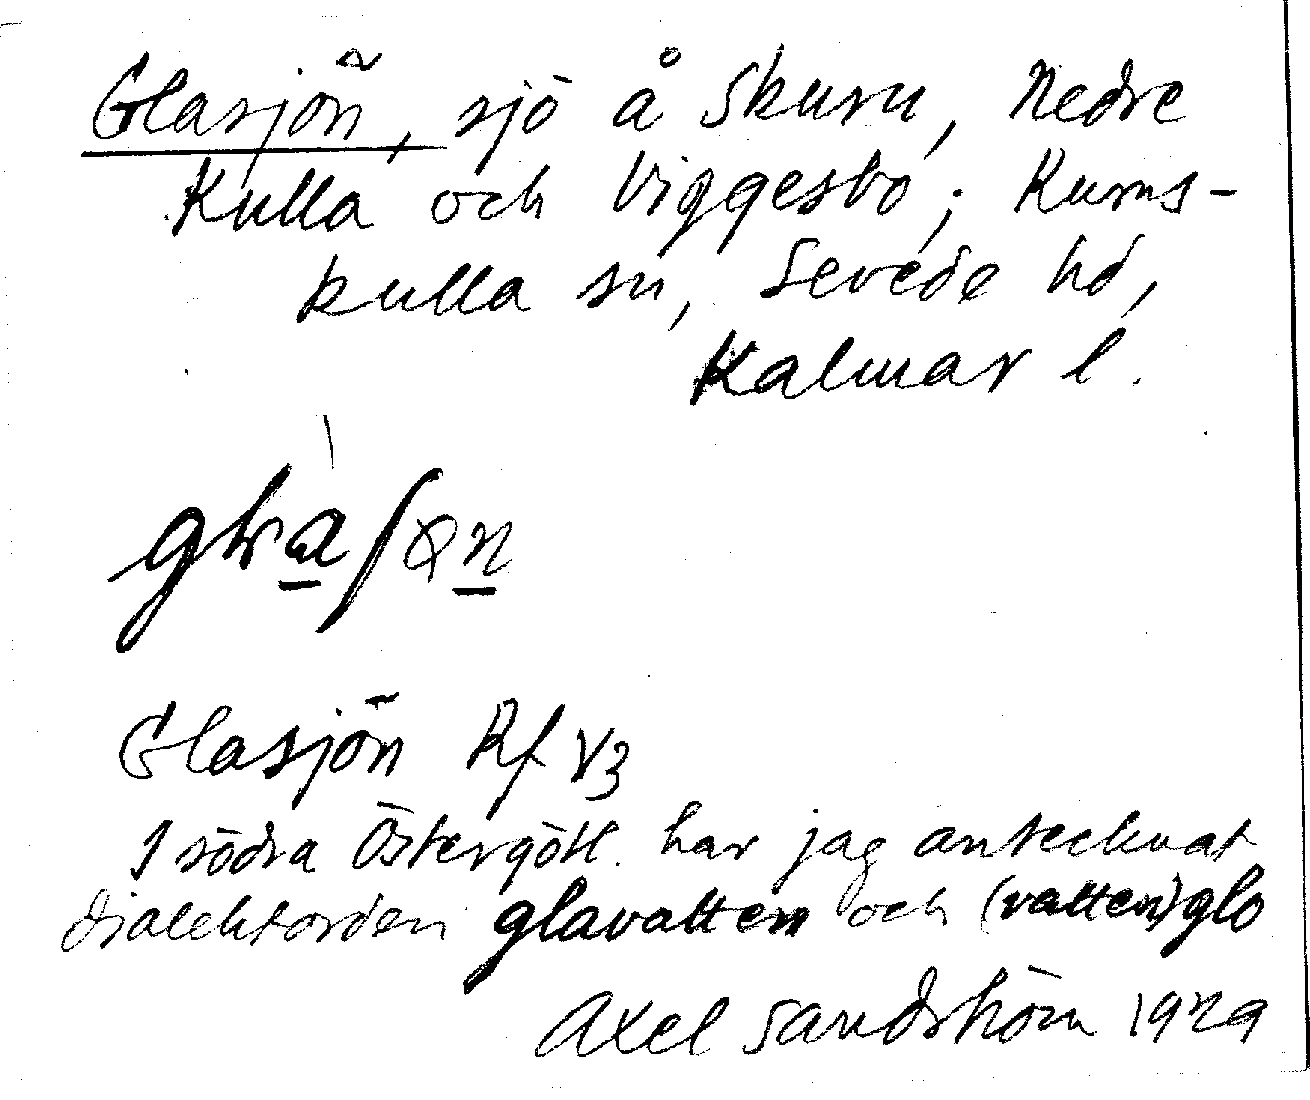 Glasjön, sjö å Skuru, Nedre
Kulla och Viggesbo; Rums-
kulla sn, Sevede hd,
Kalmar l.
Glasjön Rf V3
I södra Östergötl. har jag antecknat
dialektorden glavatten och (vatten)glo
Axel Sandström 1929